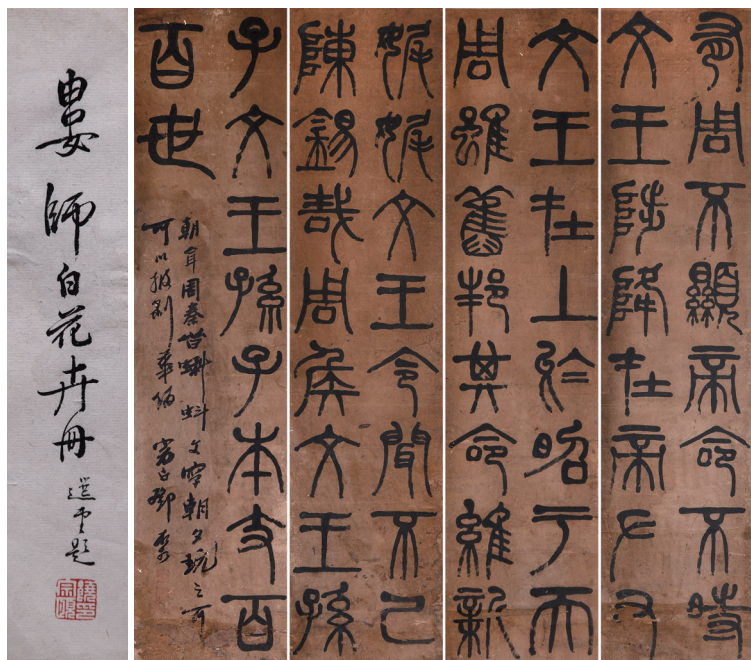 有周不顯帝命不時
文王陟降在帝左右
文王在上於昭于天
周雖舊邦其命維新
娓娓文王令聞不已
陳錫哉周侯文王孫
子文王孫子本支百
百世
朝周秦蝌蚪文字朝夕玩之可
可以白鄧
婁師白花卉冊
選堂題
饒宗頤印